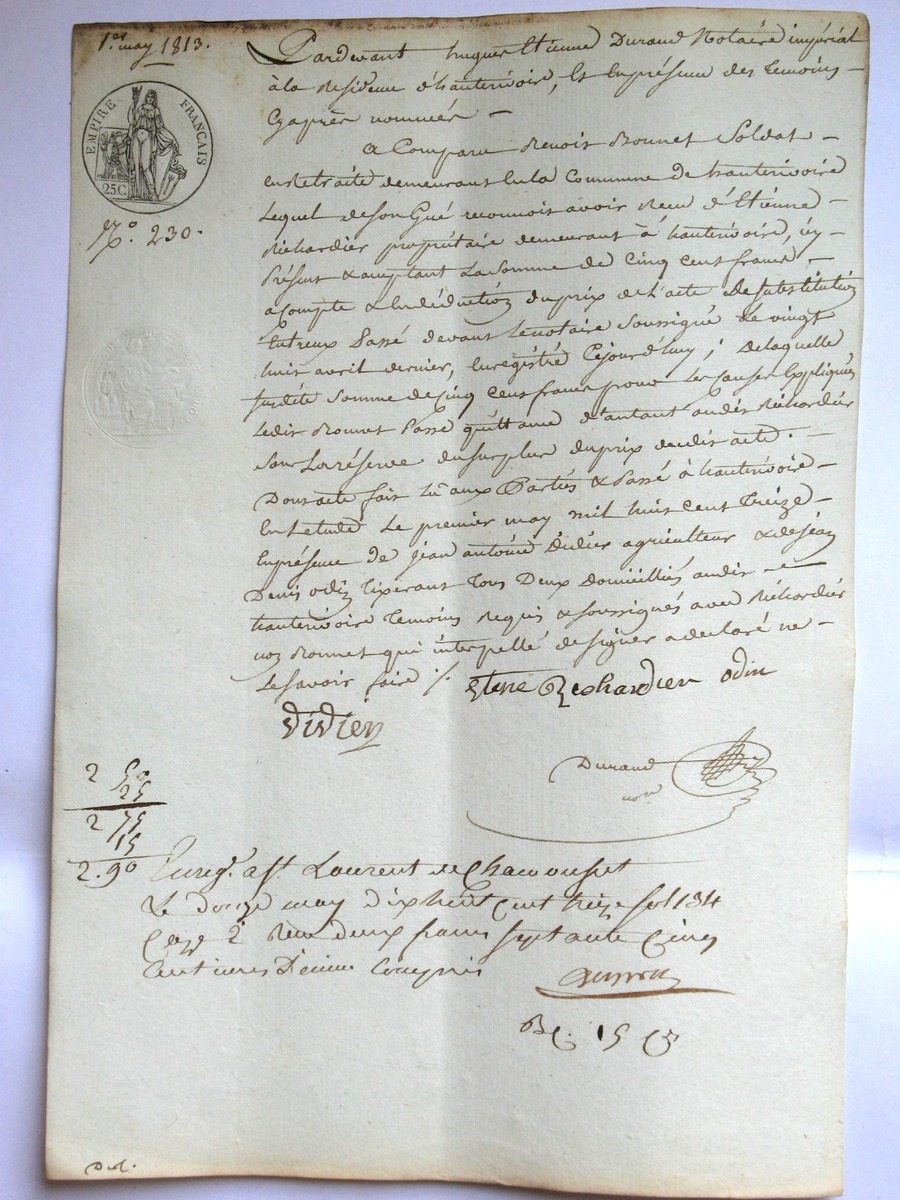 1er may 1813.
EMPIRE FRANÇAIS
25 C.
No. 230.
Pardevant hugues Etienne Durand Notaire impérial
à la Residence d'hauterivoire, Et En présence des Temoins
Cyaprès nommés
a Comparu Benoit Bonnet Soldat
en Retraite demeurant En la Commune de hauterivoire
Lequel de son Gré reconnoit avoir Recu d'Etienne
Richardier propriétaire demeurant à hauterivoire, icy
Présent & acceptant La Somme de Cinq cent francs
a compte & En déduction du prix de l'acte de Substitution
Entreux Passé devant Le notaire Soussigné Le vingt
huit avril dernier, Enregistré Cejourd'huy; De laquelle
susdite Somme de Cinq Cent francs pour Les Causes Expliquées
Ledit Bonnet Passe quittance d'autant audit Richardier
Sous La réserve du surplus du prix dudit acte.
Dont acte fait Lû aux Parties & Passé à hauterivoire
En Letude Le premier may mil huit Cent Treize
En présence de jean antoine Didier agriculteur & de jean
Denis odin Tixerant Tous Deux Domiciliés audit
hauterivoire Temoins Requis & Soussignés avec Richardier
non Bonnet qui interpellé de signer a declaré ne
Le savoir faire ./.
Etiene Richardier odin
Didier
Durand
nore
2 50
25
2 75
15
2.90
Enregt. a St. Laurent de Chamousset
Le douze may dix huit Cent treize fol 134
Case 2 Recu deux francs septante Cinq
Centimes Décime Compris
15